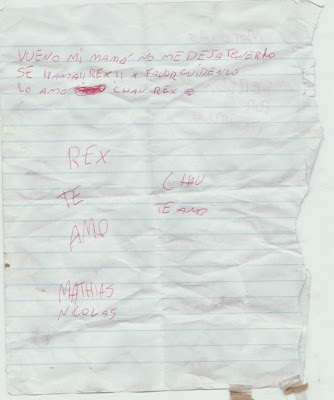 VUENO MI MAMÁ NO ME DEJA TENERLO
SE LLAMA REX X FAVOR CUIDENLO
LO AMO CHAU REX
REX
TE
AMO
CHAU
TE AMO
MATHIAS
NICOLAS